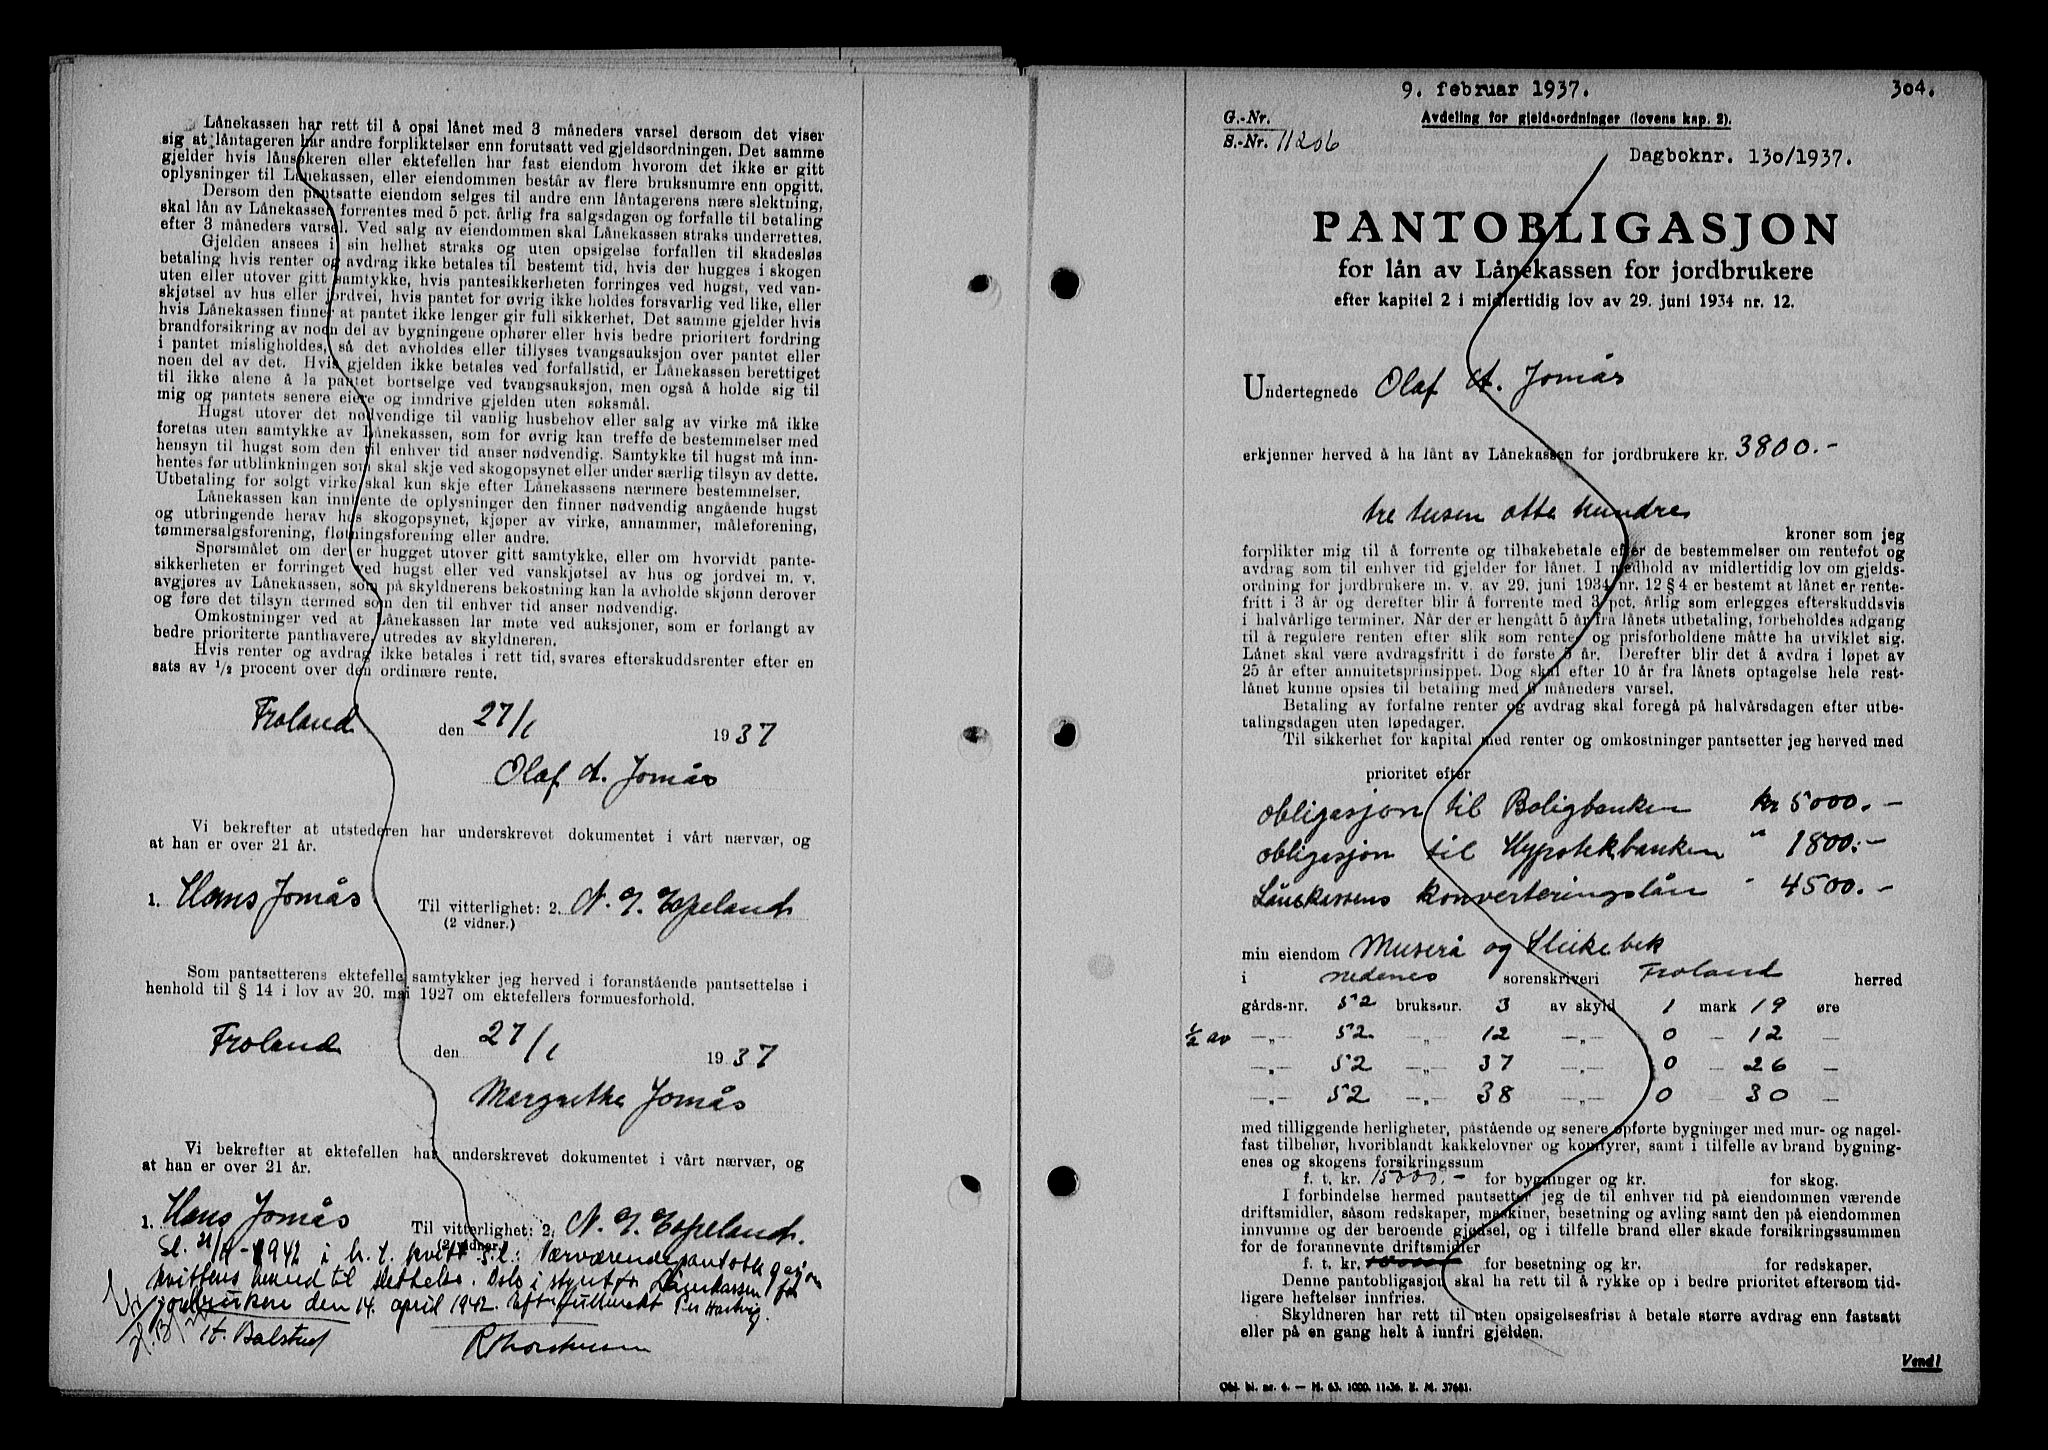 Lånekassen har rett til å opsi lånet med 3 måneders varsel dersom det viser
sig at låntageren har andre forpliktelser enn forutsatt ved gjeldsordningen. Det samme
gjelder hvis lånsøkeren eller ektefellen har fast eiendom hvorom det ikke er gitt
oplysninger til Lånekassen, eller eiendommen består av flere bruksnumre enn opgitt.
Dersom den pantsatte eiendom selges til andre enn låntagerens nære slektning,
skal lån av Lånekassen forrentes med 5 pct. årlig fra salgsdagen og forfalle til betaling
efter 3 måneders varsel. Ved salg av eiendommen skal Lånekassen straks underrettes.
Gjelden ansees i sin helhet straks og uten opsigelse forfallen til skadesløs
betaling hvis renter og avdrag ikke betales til bestemt tid, hvis der hugges i skogen
uten eller utover gitt samtykke, hvis pantesikkerheten forringes ved hugst, ved van-
skjøtsel av hus eller jordvei, hvis pantet for øvrig ikke holdes forsvarlig ved like, eller
hvis Lånekassen finner at pantet ikke lenger gir full sikkerhet. Det samme gjelder hvis
brandforsikring av noen del av bygningene ophører eller hvis bedre prioritert fordring
i pantet misligholdes, så det avholdes eller tillyses tvangsauksjon over pantet eller
noen del av det. Hvis gjelden ikke betales ved forfallstid, er Lånekassen berettiget
til ikke alene å la pantet bortselge ved tvangsauksjon, men også å holde sig til
mig og pantets senere eiere og inndrive gjelden uten søksmål.
Hugst utover det nødvendige til vanlig husbehov eller salg av virke må ikke
foretas uten samtykke av Lånekassen, som for øvrig kan treffe de bestemmelser med
hensyn til hugst som den til enhver tid anser nødvendig. Samtykke til hugst må inn-
hentes før utblinkningen som skal skje ved skogopsynet eller under særlig tilsyn av dette.
Utbetaling for solgt virke skal kun skje efter Lånekassens nærmere bestemmelser.
Lånekassen kan innhente de oplysninger den finner nødvendig angående hugst
og utbringende herav hos skogopsynet, kjøper av virke, annammer, måleforening,
tømmersalgsforening, fløtningsforening eller andre.
Spørsmålet om der er hugget utover gitt samtykke, eller om hvorvidt pante-
sikkerheten er forringet ved hugst eller ved vanskjøtsel av hus og jordvei m. v.
avgjøres av Lånekassen, som på skyldnerens bekostning kan la avholde skjønn derover
og føre det tilsyn dermed som den til enhver tid anser nødvendig.
Omkostninger ved at Lånekassen lar møte ved auksjoner, som er forlangt av
bedre prioriterte panthavere, utredes av skyldneren.
Hvis renter og avdrag ikke betales i rett tid, svares efterskuddsrenter efter en
sats av 1/2 procent over den ordinære rente.
Froland den 27/1 1937
Olaf A. Jomås
Vi bekrefter at utstederen har underskrevet dokumentet i vårt nærvær, og
at han er over 21 år.
1. Hans Jomås Til vitterlighet: 2. N. J. Espeland
(2 vidner.)
Som pantsetterens ektefelle samtykker jeg herved i foranstående pantsettelse i
henhold til § 14 i lov av 20. mai 1927 om ektefellers formuesforhold.
Froland den 27/1 1937
Margrethe Jomås
Vi bekrefter at ektefellen har underskrevet dokumentet i vårt nærvær, og
at han er over 21 år.
1. Hans Jomås Til vitterlighet: 2. N. J. Espeland.
(2 vidner.)
1942 i h. t. kvitt. : Nærværende pantobligasjon
kvitteres herved til slettelse. Oslo i styret for Lånekassen for
jordbrukere den 14. april 1942. Efter fullmakt Per Hartvig.
H. Balstad
9. februar 1937. 304.
G.-Nr.
S.-Nr. 11206
Avdeling for gjeldsordninger (lovens kap. 2).
Dagboknr. 130/1937.
PANTOBLIGASJON
for lån av Lånekassen for jordbrukere
efter kapitel 2 i midlertidig lov av 29. juni 1934 nr. 12.
Undertegnede Olaf A. Jomås
erkjenner herved å ha lånt av Lånekassen for jordbrukere kr. 3800.-
tre tusen otte hundre
kroner som jeg
forplikter mig til å forrente og tilbakebetale efter de bestemmelser om rentefot og
avdrag som til enhver tid gjelder for lånet. I medhold av midlertidig lov om gjelds-
ordning for jordbrukere m. v. av 29. juni 1934 nr. 12 § 4 er bestemt at lånet er rente-
fritt i 3 år og derefter blir å forrente med 3 pct. årlig som erlegges efterskuddsvis
i halvårlige terminer. Når der er hengått 5 år fra lånets utbetaling, forbeholdes adgang
til å regulere renten efter slik som rente- og prisforholdene måtte ha utviklet sig.
Lånet skal være avdragsfritt i de første 5 år. Derefter blir det å avdra i løpet av
25 år efter annuitetsprinsippet. Dog skal efter 10 år fra lånets optagelse hele rest-
lånet kunne opsies til betaling med 6 måneders varsel.
Betaling av forfalne renter og avdrag skal foregå på halvårsdagen efter utbe-
talingsdagen uten løpedager.
Til sikkerhet for kapital med renter og omkostninger pantsetter jeg herved med
prioritet efter
obligasjon til Boligbanken kr 5000.-
obligasjon til Hypotekbanken " 1800.-
Lånekassens konverteringslån " 4500.-
min eiendom Muserå og Slikebek
i nedenes sorenskriveri Froland herred
gårds-nr. 52 bruks-nr. 3 av skyld 1 mark 19 øre
1/2 av -„- 52. -„- 12 -„- 0 - 12 -
-„- 52 -„- 37 -„- 0 - 26 -
-„- 52 -„- 38 -„- 0 - 30 -
med tilliggende herligheter, påstående og senere opførte bygninger med mur- og nagel-
fast tilbehør, hvoriblandt kakkelovner og komfyrer, samt i tilfelle av brand bygning-
enes og skogens forsikringssum
f. t. kr. 15000.- for bygninger og kr. for skog.
I forbindelse hermed pantsetter jeg de til enhver tid på eiendommen værende
driftsmidler, såsom redskaper, maskiner, besetning og avling samt den på eiendommen
innvunne og der beroende gjødsel, og i tilfelle brand eller skade forsikringssummen
for de forannevnte driftsmidler
f. t. kr. for besetning og kr. for redskaper.
Denne pantobligasjon skal ha rett til å rykke op i bedre prioritet eftersom tid-
ligere heftelser innfries.
Skyldneren har rett til uten opsigelsesfrist å betale større avdrag enn fastsatt
eller på en gang helt å innfri gjelden.
Vend!
Obl. bl. nr. 6. — H. 63. 1000. 11-36. E. M. 37681.